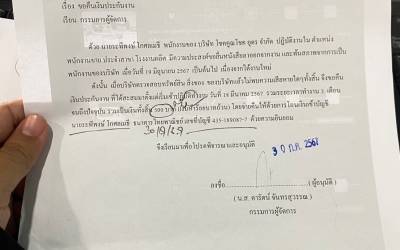 เรื่อง ขอคืนเงินประกันงาน
เรียน กรรมการผู้จัดการ
ด้วย พนักงานของ บริษัท จำกัด ปฏิบัติงานใน ตำแหน่ง
พนักงานขาย ประจำสาขา มีความประสงค์ขอยื่นหนังสือลาออกจากงาน และพ้นสภาพจากการเป็น
พนักงานของบริษัท เมื่อวันที่ 19 มิถุนายน 2567 เป็นต้นไป เนื่องจากได้งานใหม่
ดังนั้น เมื่อบริษัทตรวจสอบทรัพย์สิน สิ่งของ ของบริษัทแล้วไม่พบความเสียหายใดๆทั้งสิ้น จึงขอคืน
เงินประกันงาน ที่ได้สะสมมาตั้งแต่เริ่มเข้าปฏิบัติงาน วันที่ 18 มีนาคม 2567 รวมระยะเวลาทำงาน 3 เดือน
จนถึงปัจจุบัน รวมเป็นเงินทั้งสิ้น 500 บาท โดยจ่ายคืนให้ด้วยการโอนเงินเข้าบัญชี
ธนาคารไทยพาณิชย์ เลขที่บัญชี 435-188087-7 ด้วยความยินยอม
จึงเรียนมาเพื่อโปรดพิจารณา และอนุมัติ
30 ก.ค. 2567
ลงชื่อ (ผู้อนุมัติ)
(น.ส. ดารัตน์ จันทรสุวรรณ)
กรรมการผู้จัดการ